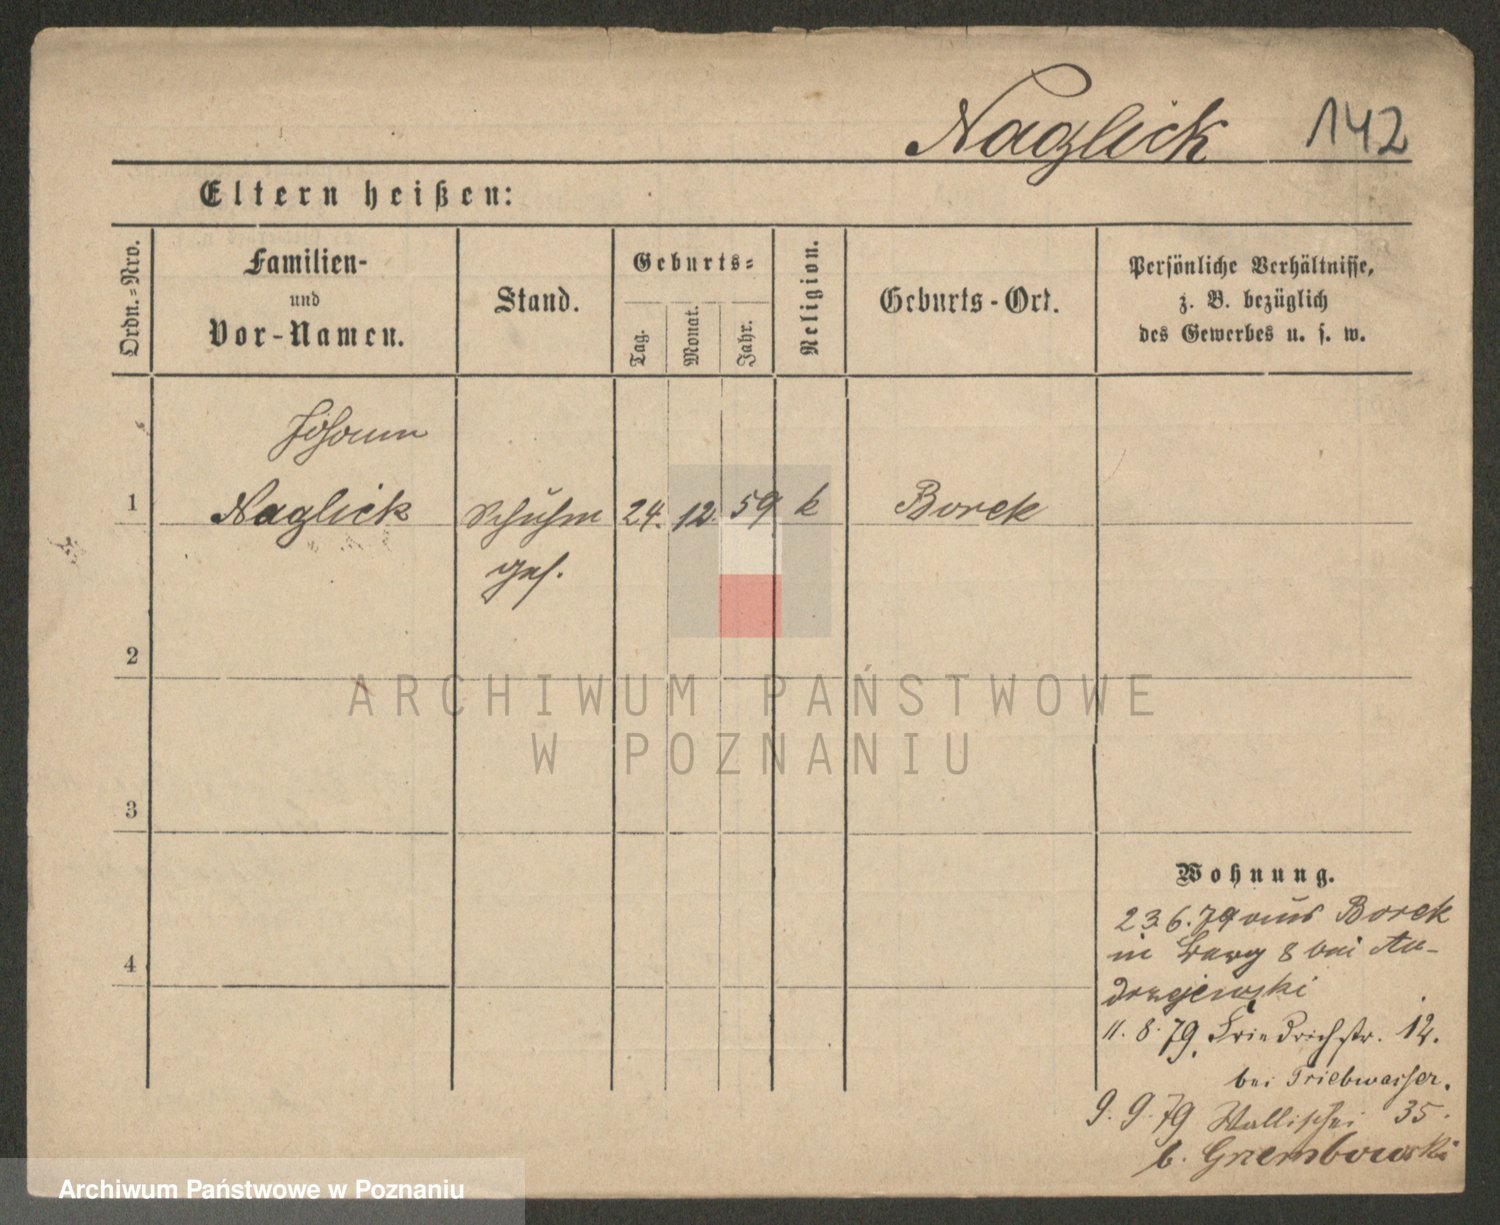 Naglick 142
Eltern heißen:
Ordn.-Nro.
Familien-
und
Vor-Namen.
Stand.
Geburts-
Tag.
Monat.
Jahr.
Religion.
Geburts-Ort.
Persönliche Verhältnisse,
z. B. bezüglich
des Gewerbes u. s. w.
Johann
1 Naglick Schuhm 24. 12. 59 k Borek
ges.
2
ARCHIWUM PAŃSTWOWE
W POZNANIU
3
Wohnung.
23.6.79 aus Borek
in 8 bei An-
drzejewski
4
11. 8. 79. Friedrichstr. 12.
bei Triebwasser.
9. 9. 79 Wallischei 35.
b. Grzembowski
Archiwum Państwowe w Poznaniu